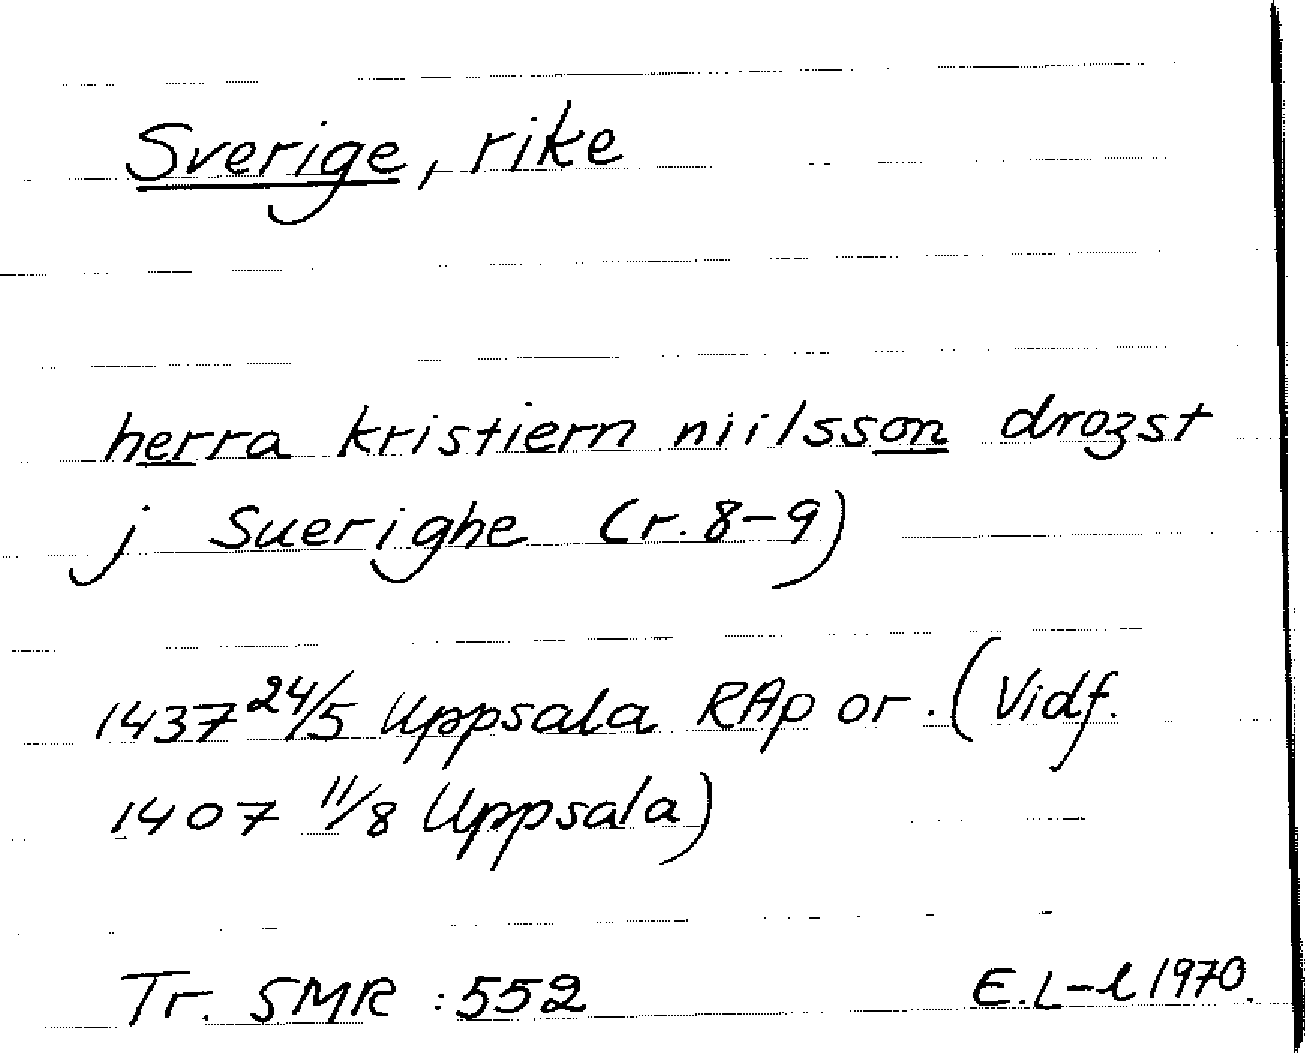 Sverige, rike
herra kristiern niilsson drozst
j Suerighe (r. 8-9)
1437 24/5 Uppsala RAp or. (Vidf.
1407 11/8 Uppsala)
Tr. SMR : 552 E. L-l 1970.